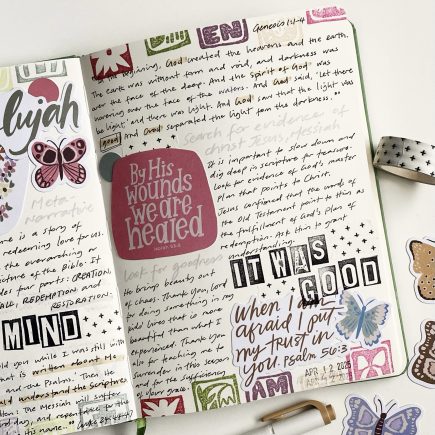 lujah
Meta
Narrative
ne is a story of
redeeming love for us.
the overarching or
picture of the Bible. It
des four parts: CREATION,
FALL, REDEMPTION and
RESTORATION.
MIND
told you while I was still with
that is written about Me
and the Psalms. Then He
could understand the Scriptures
The Messiah will suffer
third day, and repentance
His name..." Luke 24:44-47
EN
Genesis 1:1-4
the beginning, God created the heavens and the earth.
The earth was without form and void, and darkness was
over the face of the deep. And the Spirit of God was
hovering over the face of the waters. And God said, "Let there
be light," and there was light. And God saw that the light was
good. And God separated the light from the darkness.
Search for evidence of
Christ Jesus, Messiah
It is important to slow down and
dig deep in scripture for
Look for evidence of God's master
plan that points to Christ.
Jesus confirmed that the words of
the Old Testament point to him as
the fulfillment of God's plan of
redemption. Ask this to grant
understanding.
By His
wounds
we are
healed
ISAIAH 53:5
Look for goodness
He brings beauty out
of chaos. Thank You, Lord
for doing something in my
kids' lives that is more
beautiful than what I
experienced. Thank You
also for teaching me to
surrender in this season
and for the sufficiency
of your Grace.
IT WAS
GOOD
When I am
afraid I put
my trust in
you. Psalm 56:3
APR 12 2025
AM